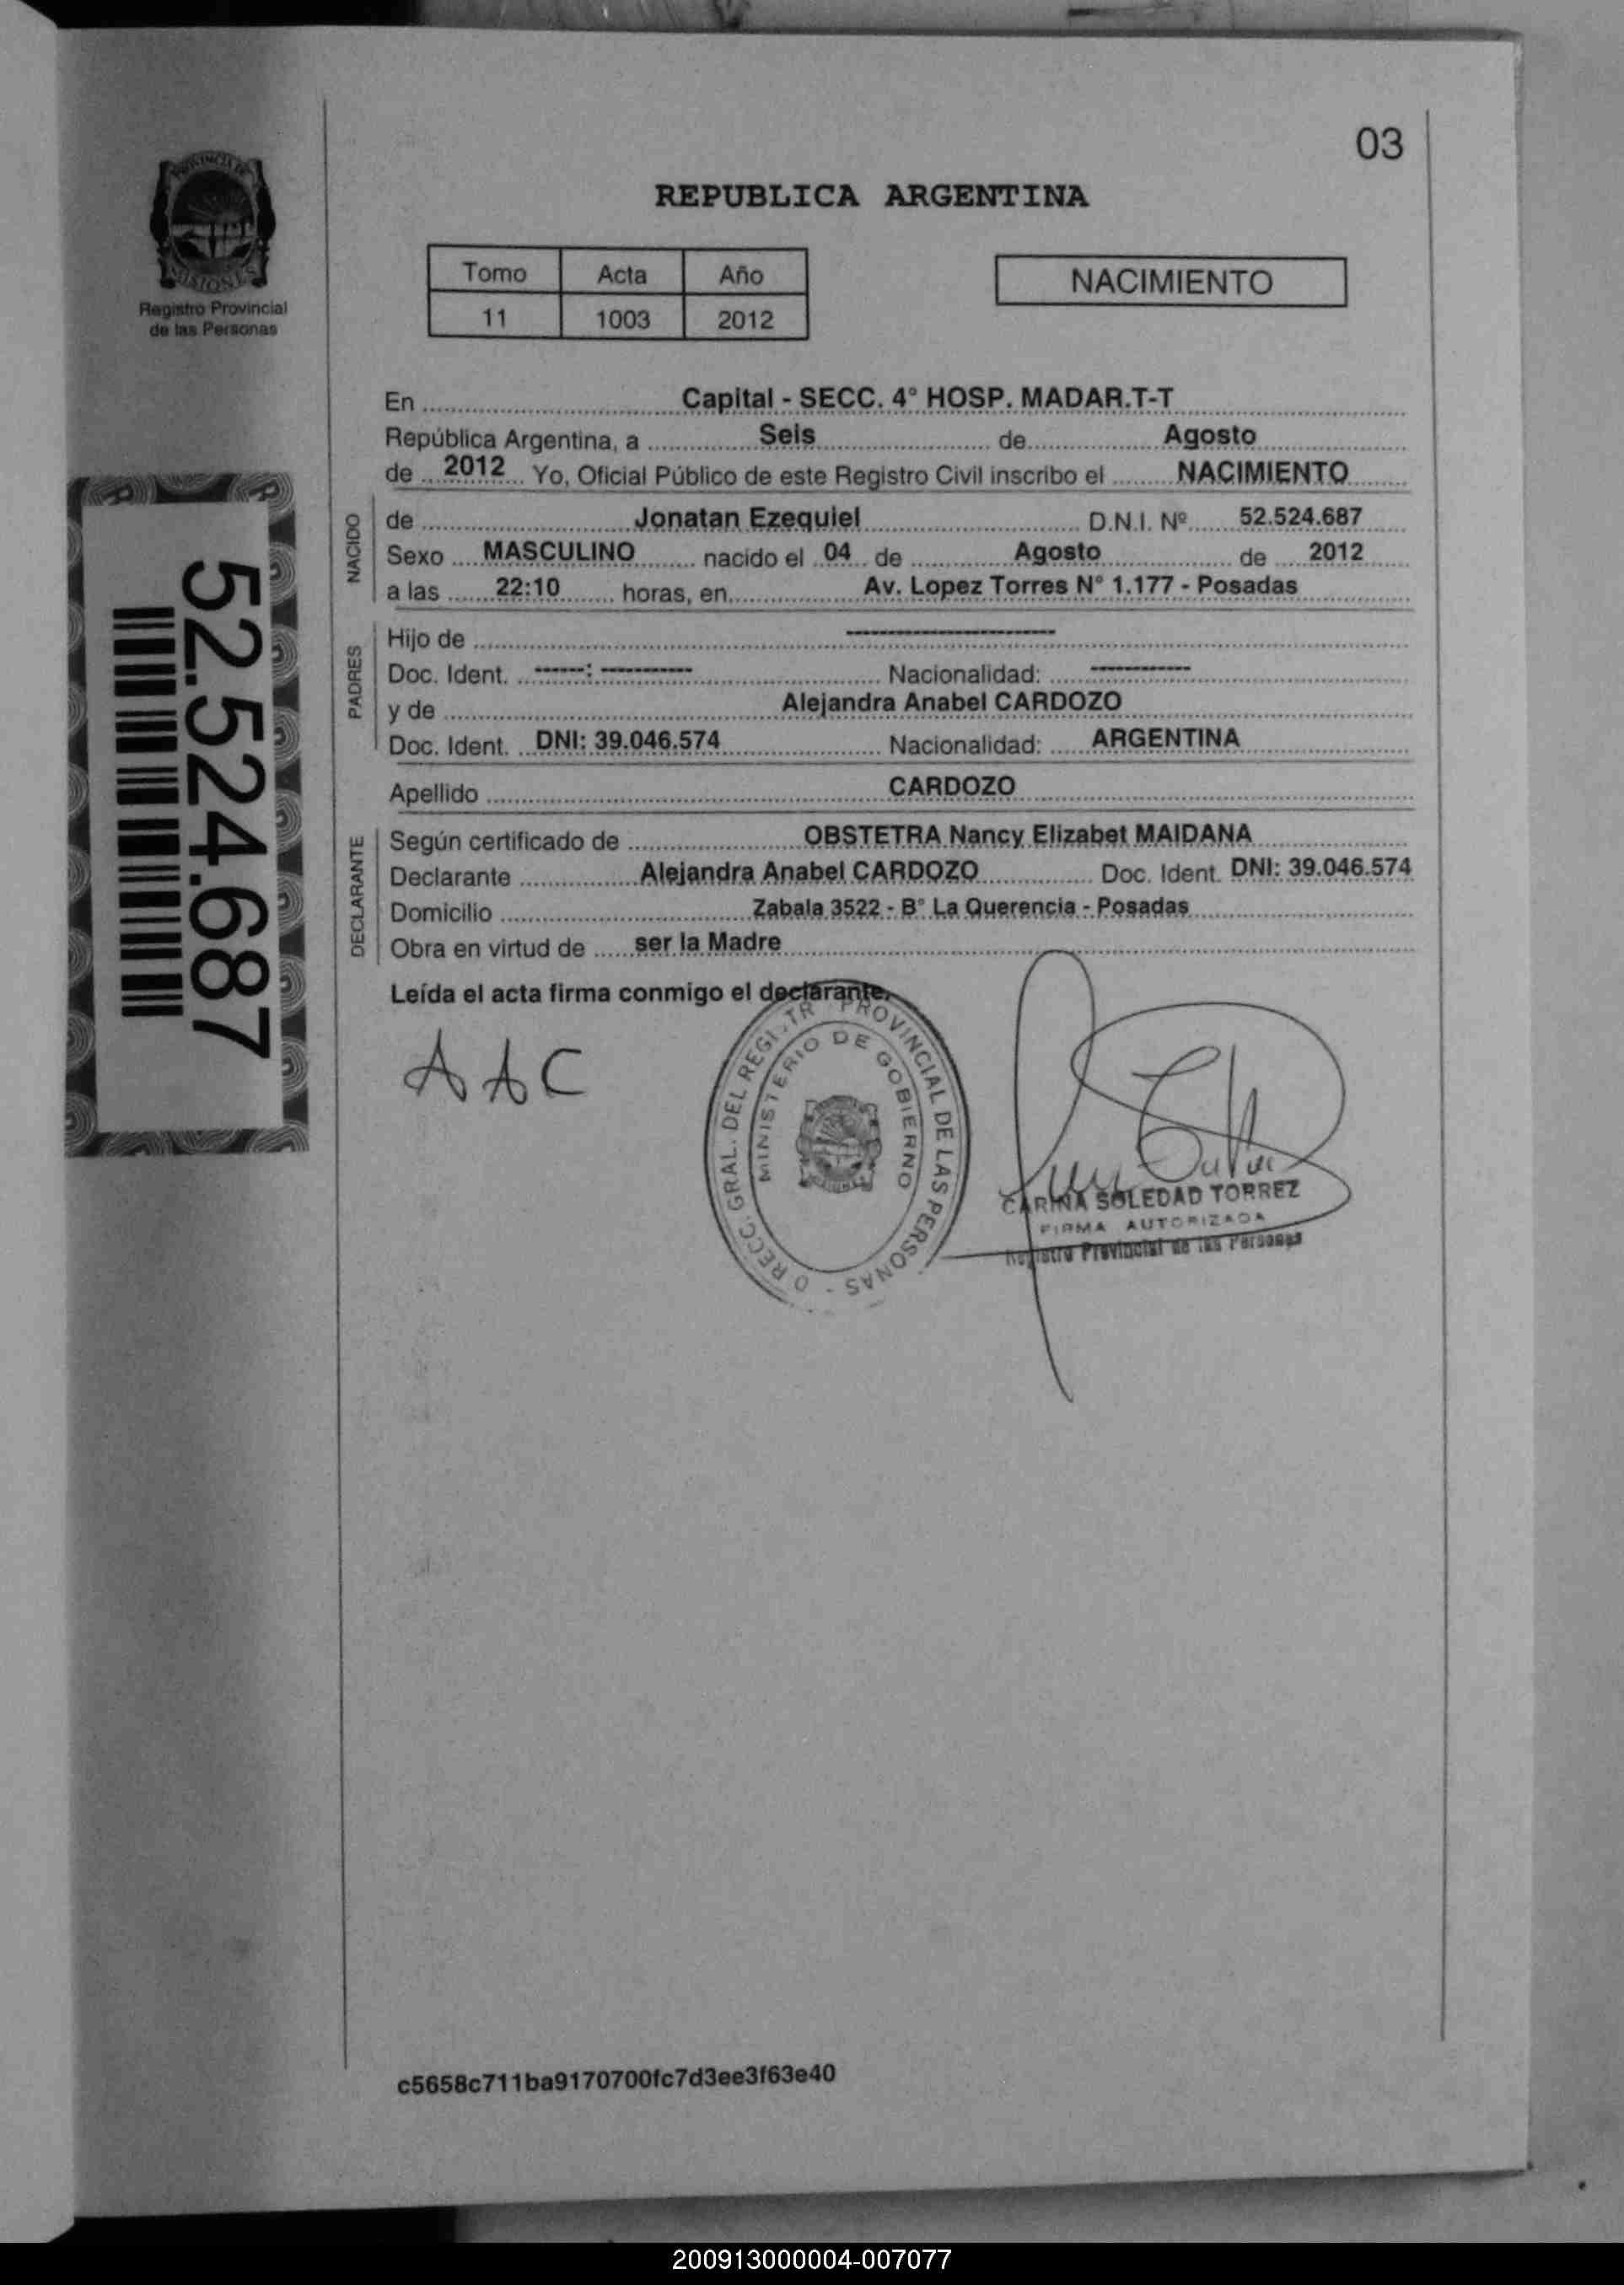 03
REPUBLICA ARGENTINA
PROVINCIA DE
MISIONES
Registro Provincial
de las Personas
Tomo Acta Año
11 1003 2012
NACIMIENTO
En Capital - SECC. 4° HOSP. MADAR.T-T
República Argentina, a Seis de Agosto
de 2012 Yo, Oficial Público de este Registro Civil inscribo el NACIMIENTO
NACIDO
de Jonatan Ezequiel D.N.I. Nº 52.524.687
Sexo MASCULINO nacido el 04 de Agosto de 2012
a las 22:10 horas, en Av. Lopez Torres N° 1.177 - Posadas
PADRES
Hijo de --------------------
Doc. Ident. ------: ----------- Nacionalidad: ------------
y de Alejandra Anabel CARDOZO
Doc. Ident. DNI: 39.046.574 Nacionalidad: ARGENTINA
Apellido CARDOZO
DECLARANTE
Según certificado de OBSTETRA Nancy Elizabet MAIDANA
Declarante Alejandra Anabel CARDOZO Doc. Ident. DNI: 39.046.574
Domicilio Zabala 3522 - B° La Querencia - Posadas
Obra en virtud de ser la Madre
Leída el acta firma conmigo el declarante.
52.524.687
AAC
DIRECC. GRAL. DEL REGISTR PROVINCIAL DE LAS PERSONAS -
MINISTERIO DE GOBIERNO
CARINA SOLEDAD TORREZ
FIRMA AUTORIZADA
Registro Provincial de las Personas
c5658c711ba9170700fc7d3ee3f63e40
200913000004-007077